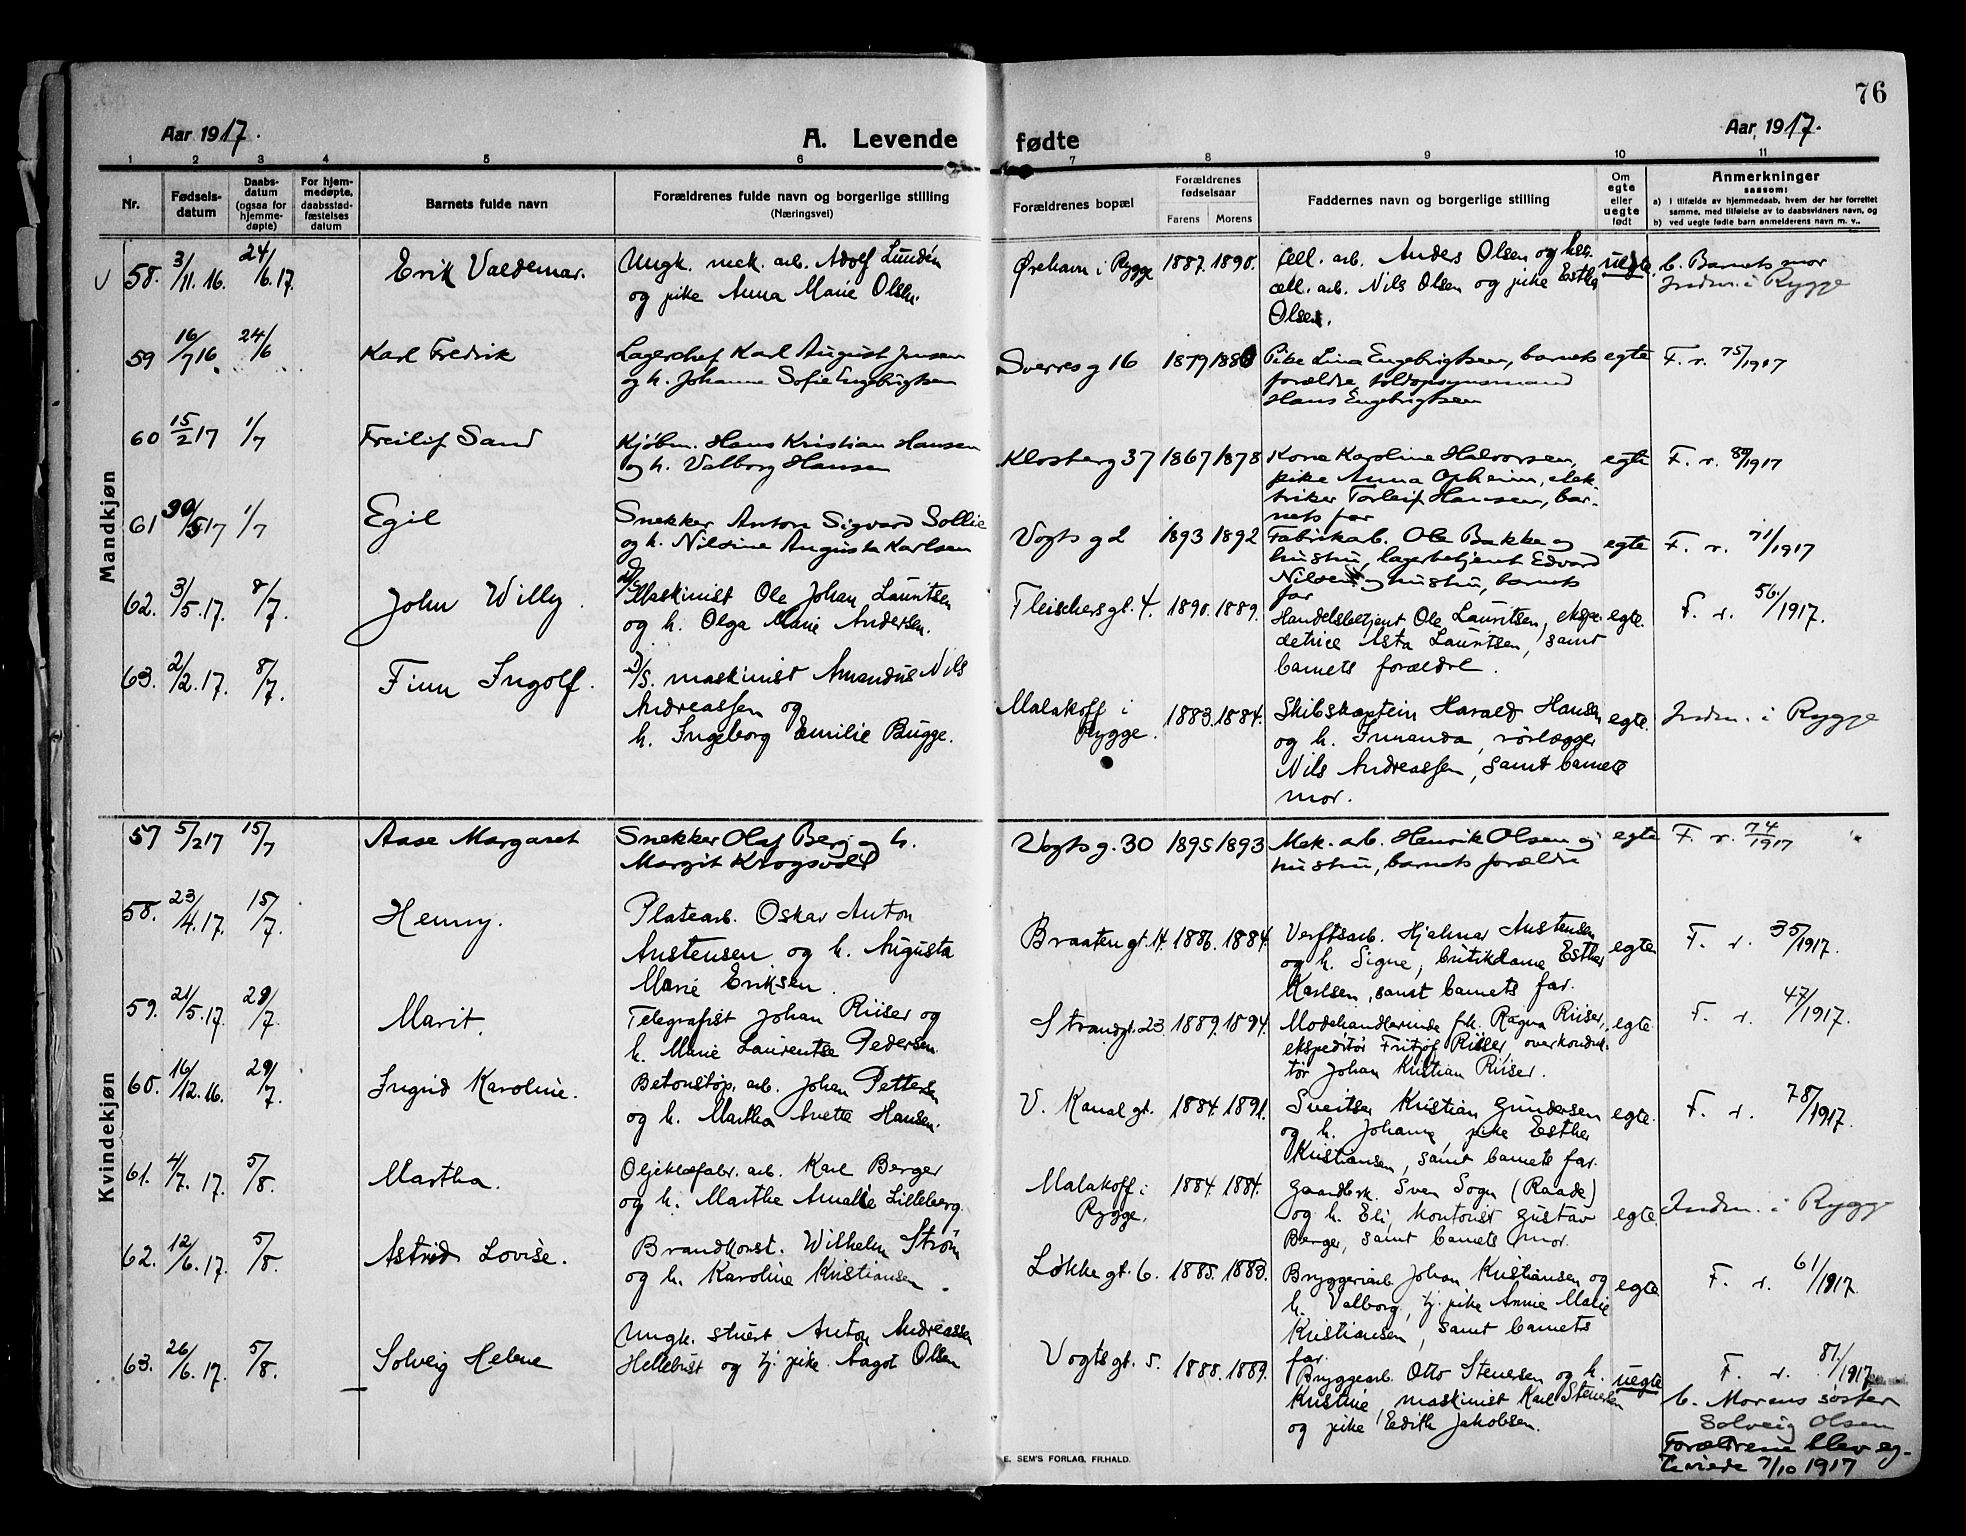 76
Aar 1917. A. Levende fødte Aar 1917.
1 2 3 4 5 6 7 8 9 10 11
Nr.
Fødsels-
datum
Daabs-
datum
(ogsaa for
hjemme-
døpte)
For hjem-
medøpte,
daabsstad-
fæstelses
datum
Barnets fulde navn
Forældrenes fulde navn og borgerlige stilling
(Næringsvei)
Forældrenes bopæl
Forældrenes
fødselsaar
Farens Morens
Faddernes navn og borgerlige stilling
Om
egte
eller
uegte
født
Anmerkninger
saasom:
a) i tilfælde av hjemmedaab, hvem der har forrettet
samme, med tilføielse av to daabsvidners navn, og
b) ved uegte fødte barn anmelderens navn m. v..
Mandkjøn
58. 3/11. 16. 24/6. 17. Erik Valdemar.
Ungk. mek. arb. Adolf Lundén
og pike Anna Marie Olsen.
Ørehavn i Rygge 1887. 1890.
cell. arb. Andes Olsen og hus.
cell. arb. Nils Olsen og pike Esther
Olsen.
uegte.
b. Barnets mor
Indm. i Rygge
59 16/7 16 24/6 Karl Fredrik
Lagerchef Karl August Jensen
og h. Johanne Sofie Engebrigtsen
Sverres g 16 1879 1880
Pike Lina Engebrigtsen, barnets
forældre, toldopsynsmand
Hans Engebrigtsen
egte F. r. 75/1917
60 15/2 17 1/7 Freilif Sand
Kjøbm. Hans Kristian Hansen
og h. Valborg Hansen
Klosterg 37 1867 1878
Kone Karoline Halvorsen,
pike Anna Opheim, elek-
triker Torleif Hansen, bar-
nets far
egte F. r. 89/1917
61 30/5 17 1/7 Egil
Snekker Anton Sigvard Sollie
og h. Nilsine Augusta Karlsen
Vogts g 2 1893 1892
Fabrikarb. Ole Bakke og
hustru, lagerbetjent Edvard
Nilsen og hustru, barnets
far
egte F. r. 71/1917
62. 3/5. 17. 8/7. John Willy.
D/S. Maskinist Ole Johan Lauritsen
og h. Olga Marie Andersen.
Fleischersgt. 4. 1890. 1889.
Handelsbetjent Ole Lauritsen, ekspe-
detrice Asta Lauritsen, samt
barnets forældre.
egte. F. r. 56/1917.
63. 2/2. 17. 8/7. Finn Ingolf.
D/S. maskinist Amandus Nils
Andreassen og
h. Ingeborg Emilie Bugge.
Malakoff i
Rygge. 1883. 1884.
Skibskaptein Harald Hansen
og h. Inanda, rørlægger
Nils Andreassen, samt barnets
mor.
egte. Indm. i Rygge
Kvindekjøn
57 5/2 17 15/7 Aase Margaret
Snekker Olaf Berg og h.
Margit Krogsvold
Vogts g. 30 1895 1893
Mek. arb. Henrik Olsen og
hustru, barnets forældre
egte F. r. 74/1917
58. 23/4. 17. 15/7. Henny.
Platearb. Oskar Anton
Austensen og h. Augusta
Marie Eriksen.
Braatengt. 14. 1886. 1884.
Verftsarb. Hjalmar Austensen
og h. Signe, butikdame Esther
Karlsen, samt barnets far.
egte F. r. 35/1917.
59. 21/5. 17. 29/7. Marit.
Telegrafist Johan Riiser og
h. Marie Laurentse Pedersen.
Strandgt. 23. 1889. 1894.
Modehandlerinde frk. Ragna Riiser,
ekspeditør Fritjof Riiser overkonduk-
tør Johan Kristian Riiser.
egte. F. r. 47/1917.
60. 16/12. 16. 29/7. Ingrid Karoline.
Betonstøp. arb. Johan Pettersen
og h. Martha Anette Hansen.
V. Kanal gt. 1884. 1891.
Sveitser Kristian Gundersen
og h. Johanne, pike Esther
Kristiansen, samt barnets far.
egte. F. r. 78/1917.
61. 4/7. 17. 5/8. Martha.
Oljeklæfabr. arb. Karl Berger
og h. Marthe Amalie Lilleberg.
Malakoff i
Rygge. 1884. 1884.
Gaardbrk. Sven Sogn (Raade)
og h. Eli, kontorist Gustav
Berger, samt barnets mor.
egte. Indm. i Rygge
62. 12/6. 17. 5/8. Astrid Lovise.
Brandkonst. Wilhelm Strøm
og h. Karoline Kristiansen.
Løkkegt. 6. 1885. 1883.
Bryggeriarb. Johan Kristiansen og
h. Valborg, tj. pike Annie Marie
Kristiansen, samt barnets
far.
egte F. r. 61/1917.
63. 26/6. 17. 5/8. Solveig Helene
Ungk. stuert Anton Andreassen
Hellebust og tj. pike Aagot Olsen
Vogtsgt. 5. 1888. 1889.
Bryggearb. Otto Stenersen og h.
Kristine, maskinist Karl Stenersen
og pike Edith Jakobsen.
uegte F. r. 81/1917
b. Morens søster
Solveig Olsen
Forældrene blev eg-
teviede 7/10 1917
E. SEM'S FORLAG, FR.HALD.